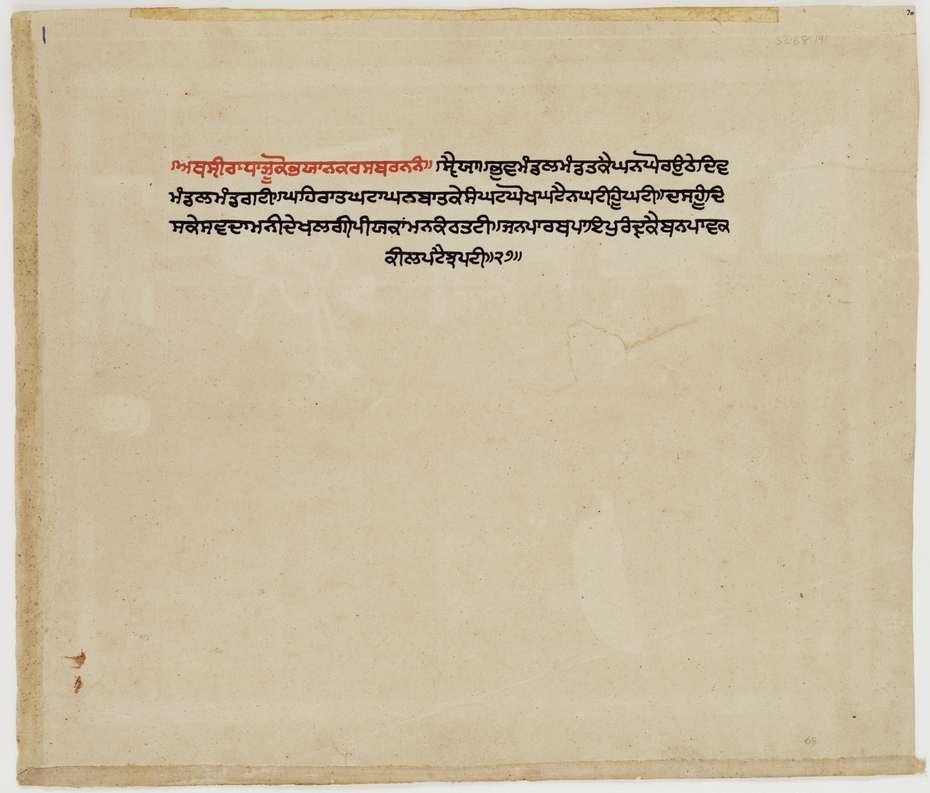 ॥ਅਥਸ੍ਰੀਰਾਧਾਜੂਕੋਭਯਾਨਕਰਸਬਰਨਨੰ॥ ॥ਸ੍ਵੈਯਾ॥ਭੂਵਮੰਡਲਮੰਡਤਕੈਘਨਘੋਰਉਠੇਦਿਵ
ਮੰਡਲਮੰਡਗਟੀ॥ਘਹਿਰਾਤਘਟਾਘਨਬਾਤਕੇਸੰਘਟਘੋਖਘਟੈਨਘਟੀਹੂੰਘਟੀ॥ਦਸਹੂੰਦਿ
ਸਕੇਸਵਦਾਮਨੀਦੇਖਲਗੀਪੀਯਕਾਂਮਨਕੰਠਤਟੀ॥ਜਨਪਾਰਥਪਾਇਪੁਰੰਦ੍ਰਕੈਬਨਪਾਵਕ
ਕੀਲਪਟੈਝਪਟੀ॥੨੭॥